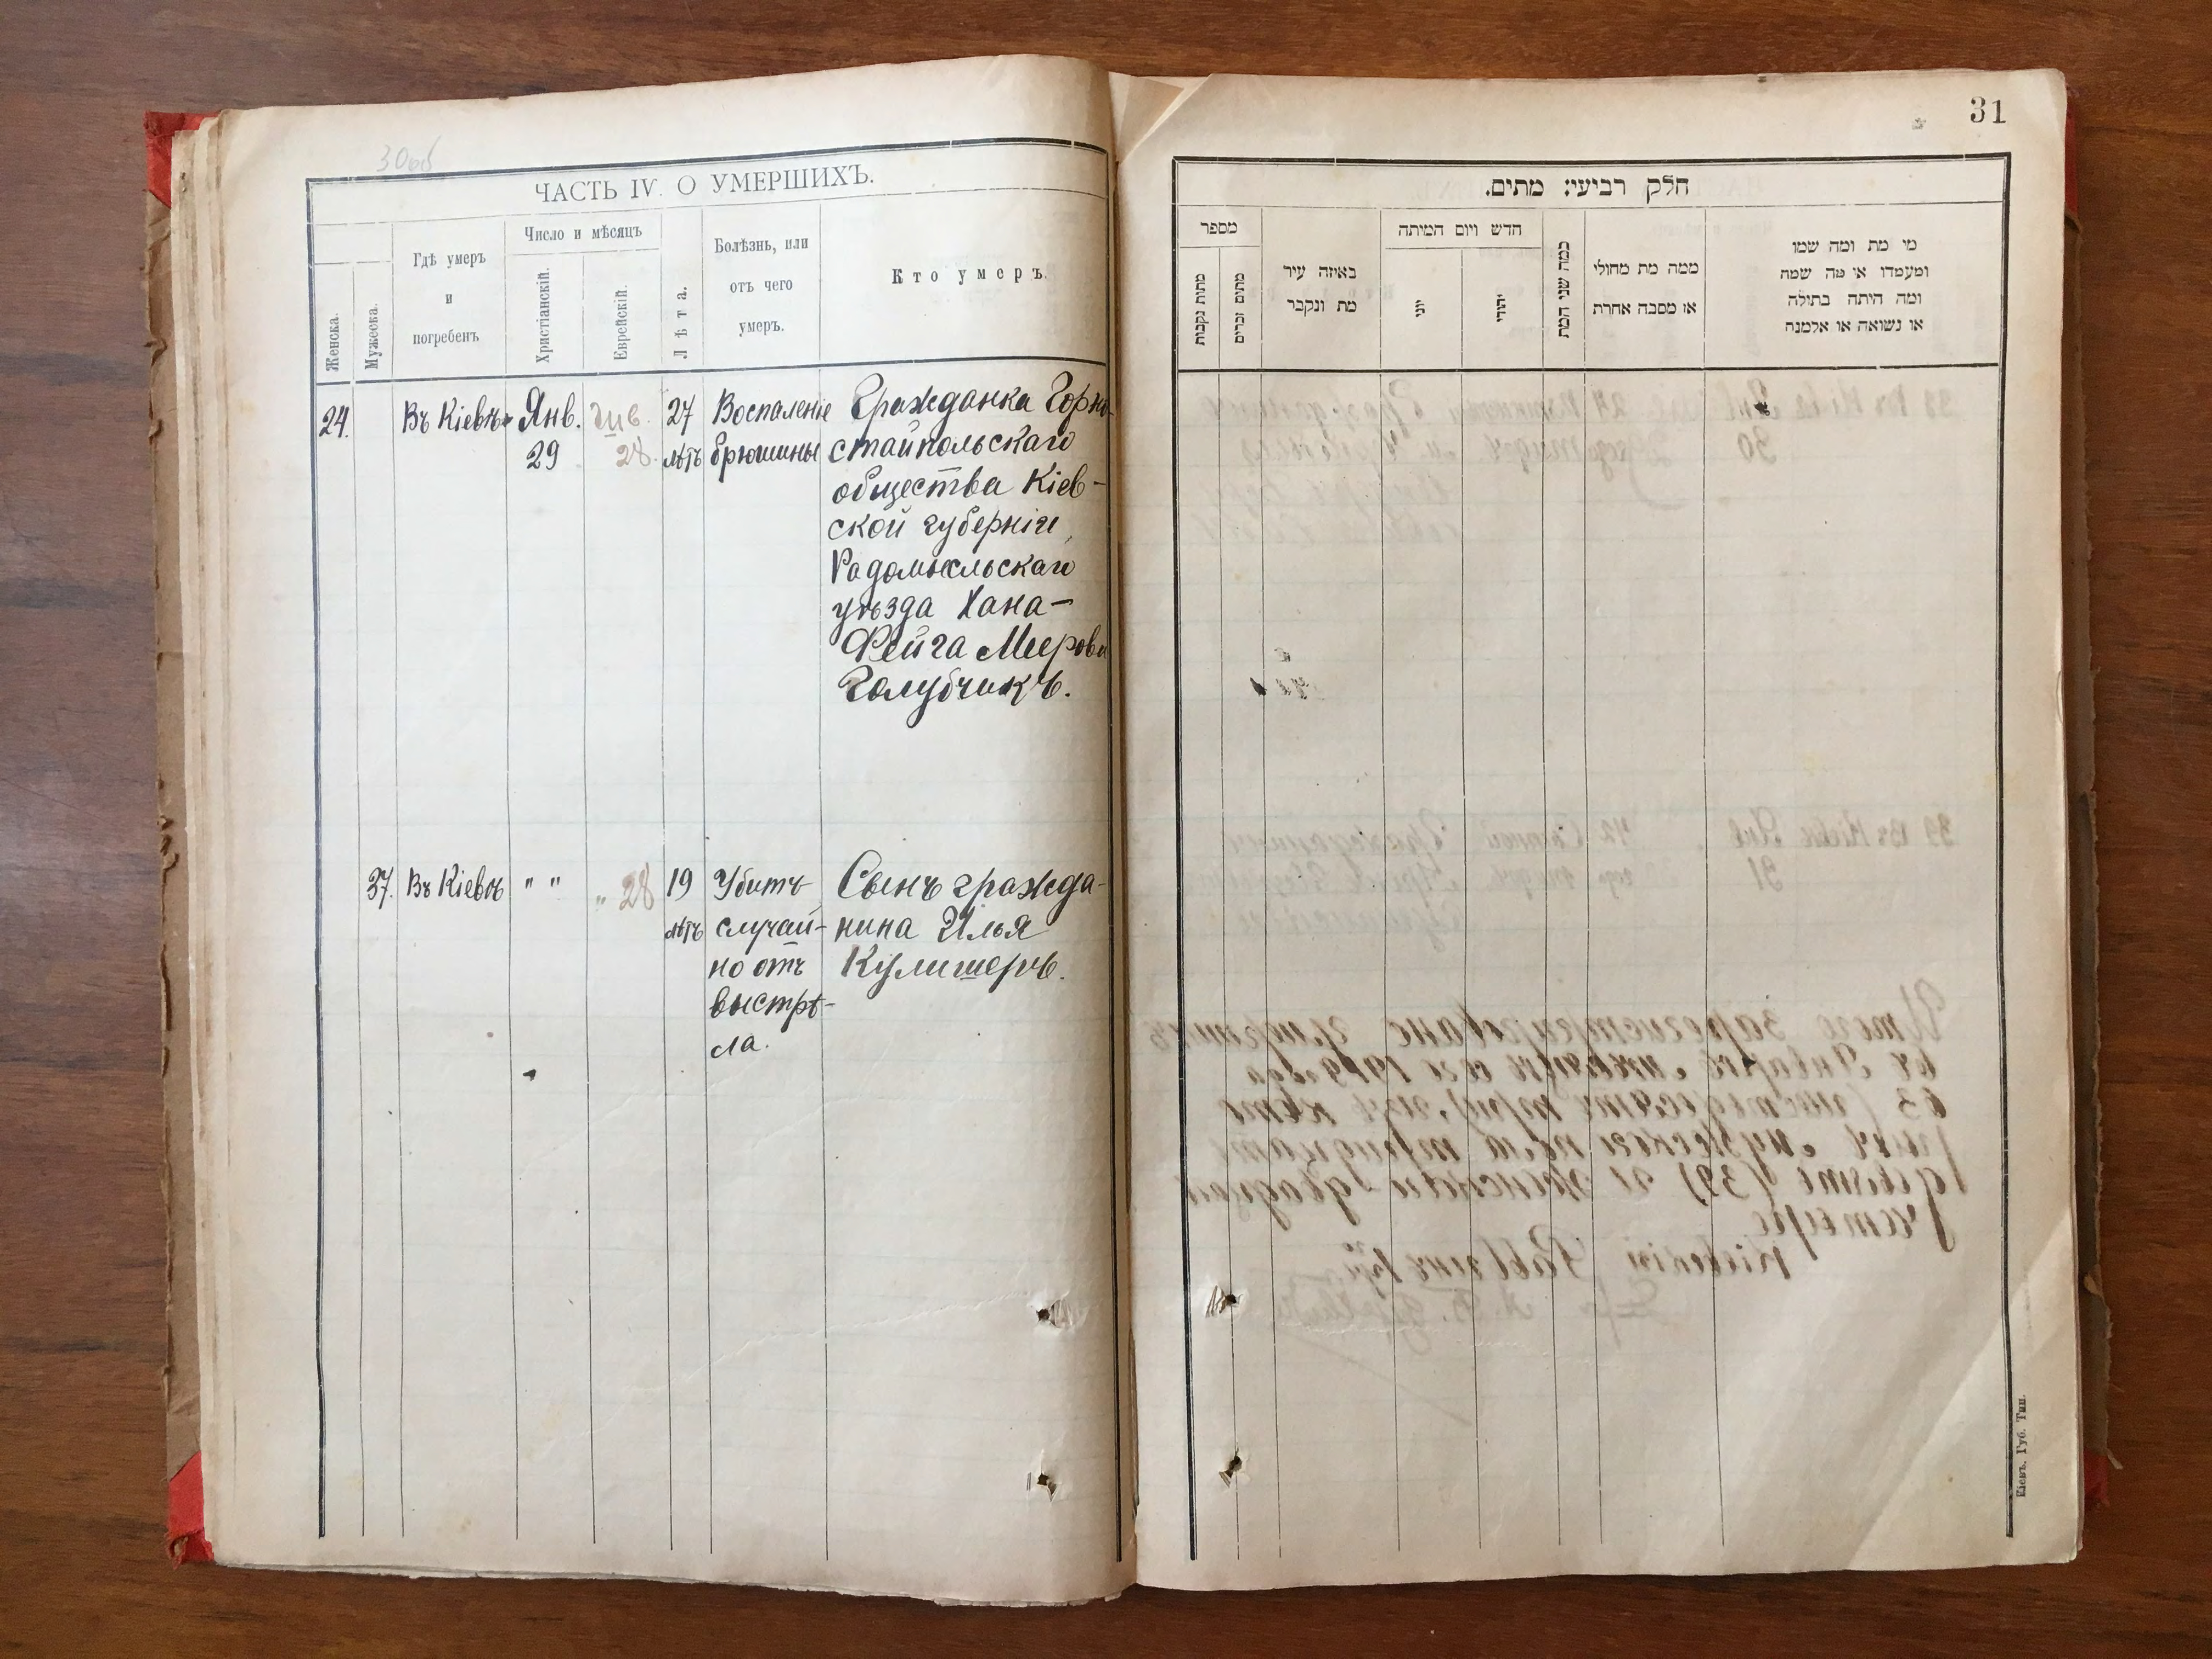 30об
ЧАСТЬ IV. О УМЕРШИХЪ.
Женска.
Мужеска.
Гдѣ умеръ
и
погребенъ
Число и мѣсяцъ
Христіанскій.
Еврейскій.
Лѣта.
Болѣзнь, или
отъ чего
умеръ.
Кто умеръ.
24.
Въ Кіевѣ
Янв.
29
28
27
лѣтъ
Воспаленіе
брюшины
Гражданка Горно-
стайпольскаго
общества Кіев-
ской губерніи,
Радомысльскаго
уѣзда Хана-
Фейга Меерова
Голубчикъ.
37.
Въ Кіевѣ
" "
" 28
19
лѣтъ
Убитъ
случай-
но отъ
выстрѣ-
ла.
Сынъ гражда-
нина Илья
Кулишеръ.
31
חלק רביעי: מתים.
מספר
מתות נקבות
מתים זכרים
באיזה עיר
מת ונקבר
חדש ויום המיתה
יוני
יהודי
כמה שני המת
ממה מת מחולי
או מסבה אחרת
מי מת ומה שמו
ומעמדו או מה שמה
ומה היתה בתולה
או נשואה או אלמנה
Кіевъ. Губ. Тип.